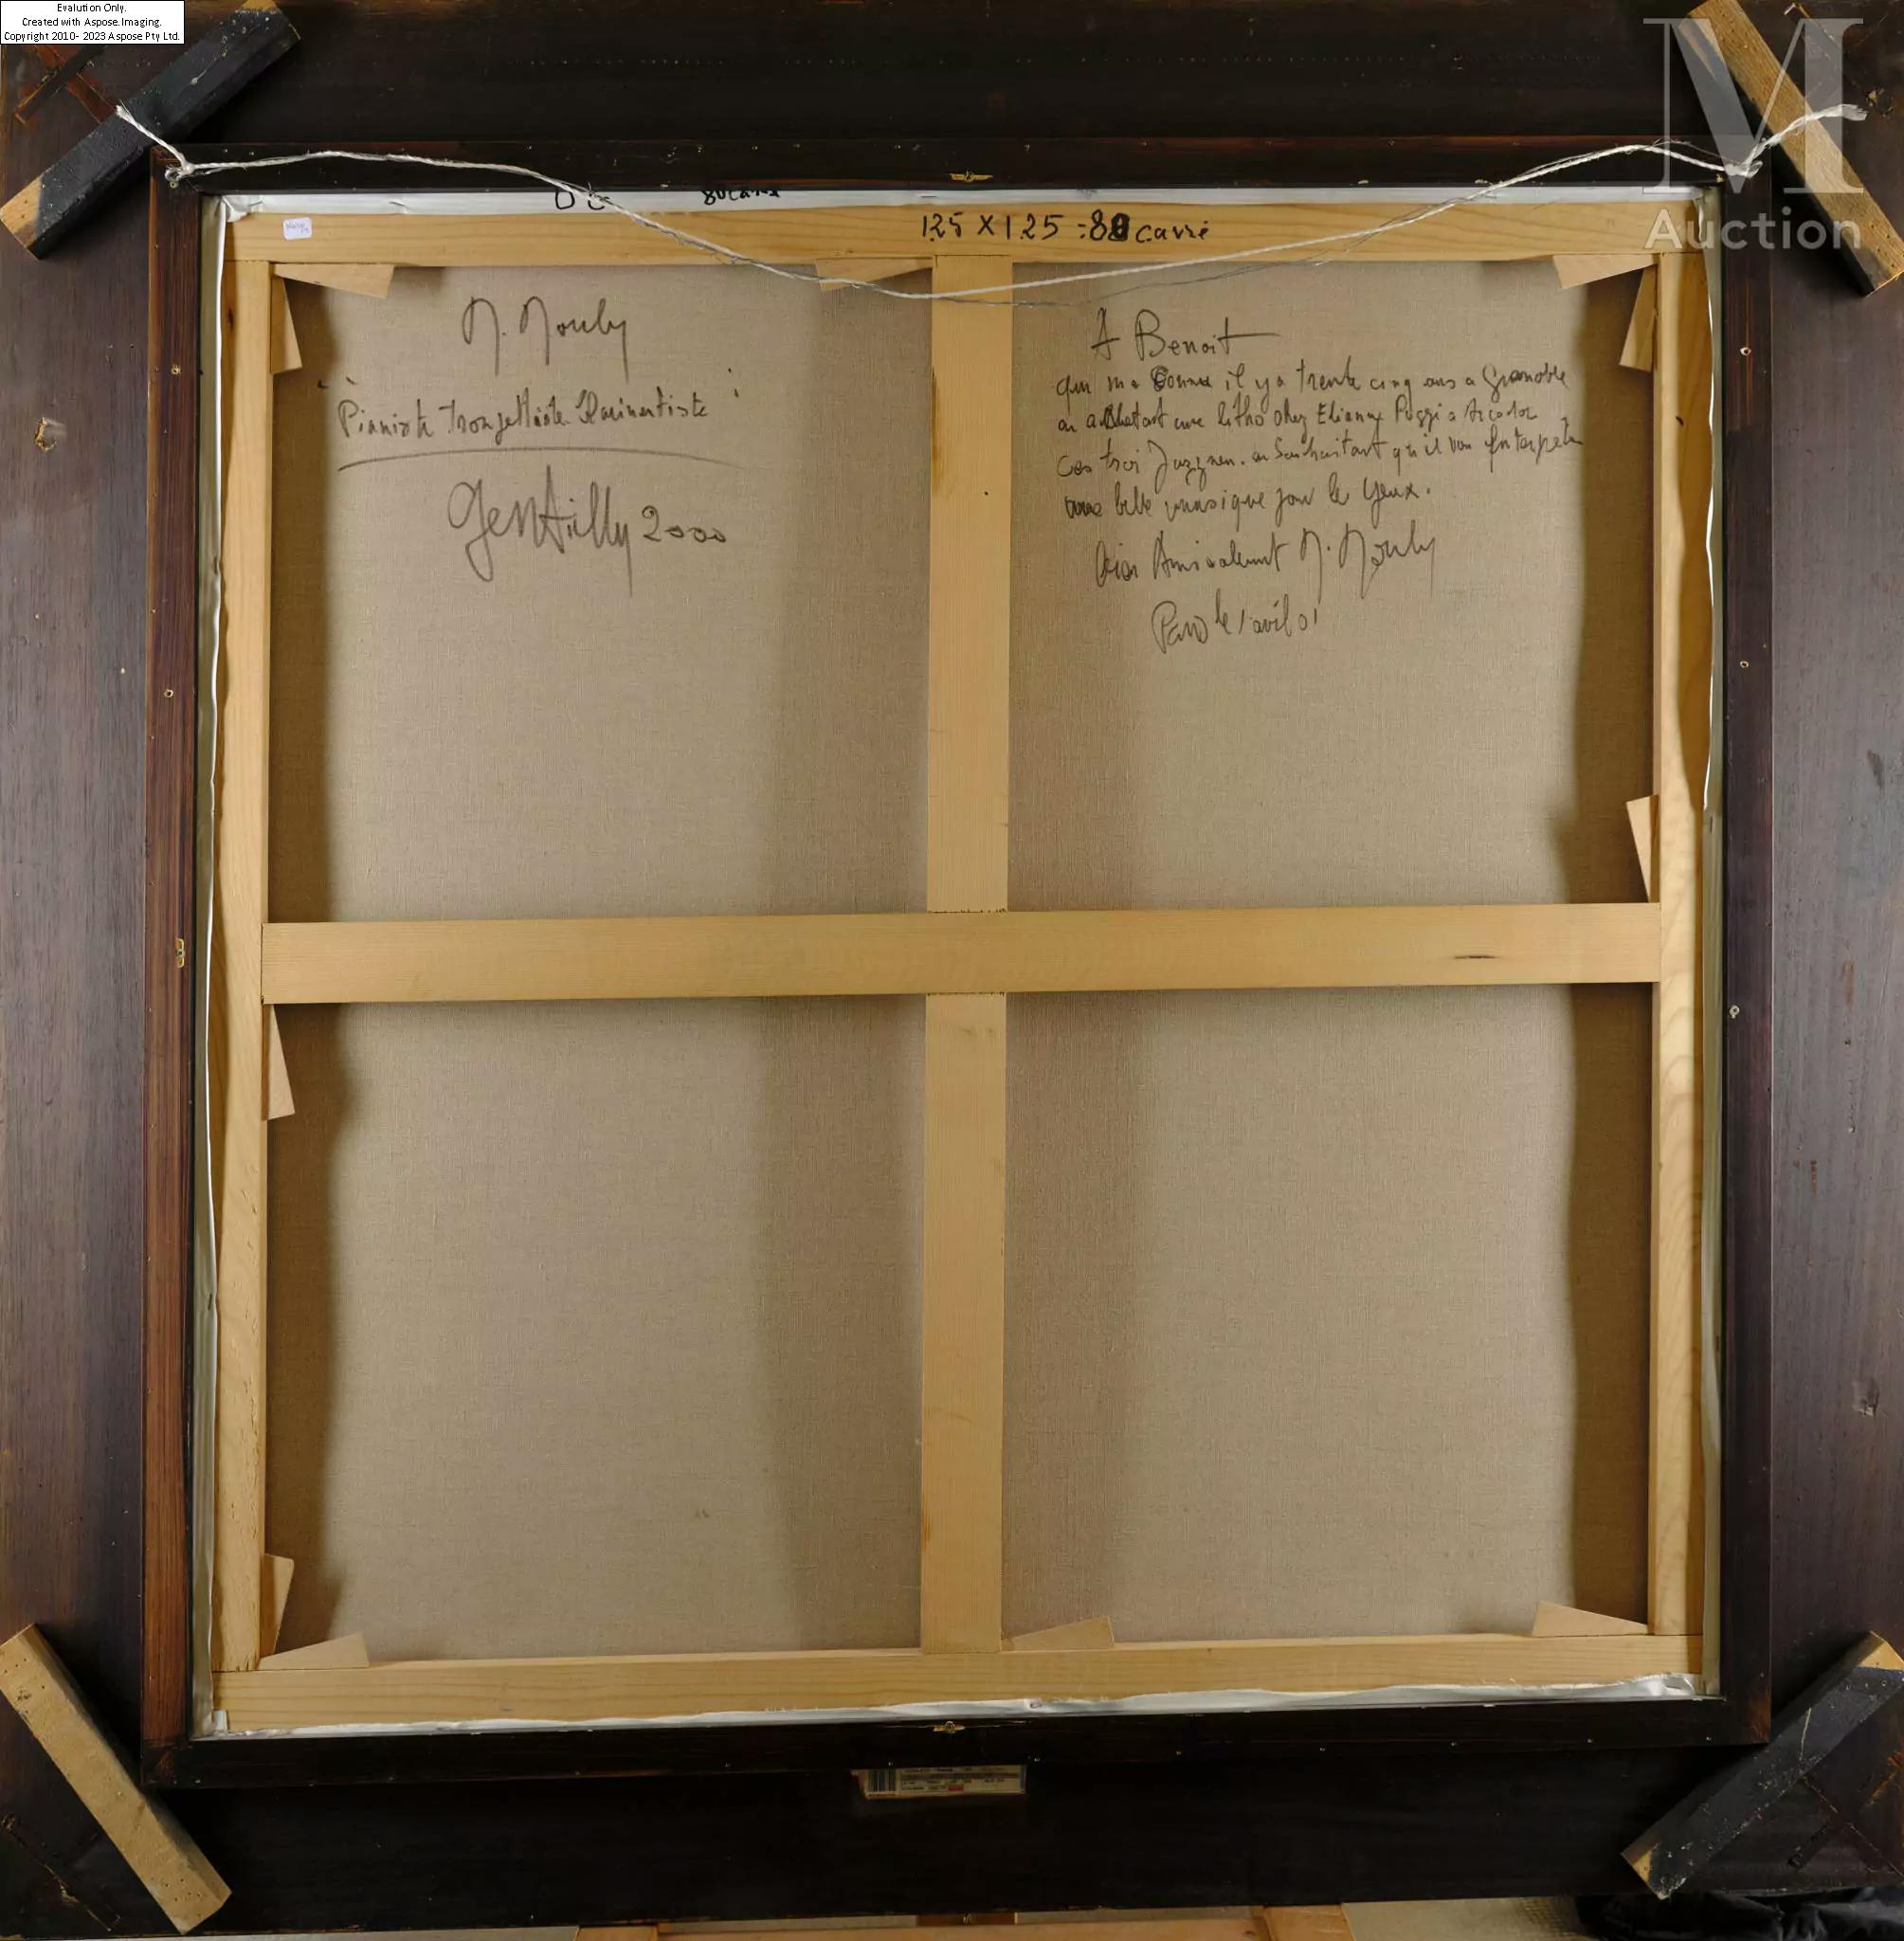 Evalution Only.
Created with Aspose.Imaging.
Copyright 2010- 2023 Aspose Pty Ltd.
M
Auction
125 X 125 = 80 carré
M. Mouly
Pianiste Trompettiste
Gentilly 2000
A Benoit
qui m'a connu il y a trente cinq ans a Grenoble
en achetant une litho chez Elianne Poggi a
ces troi Jazzmen. en souhaitant qu'il vou interprete
une belle musique pour le yeux.
Bien Amicalement M. Mouly
Paris le 1 avril 01